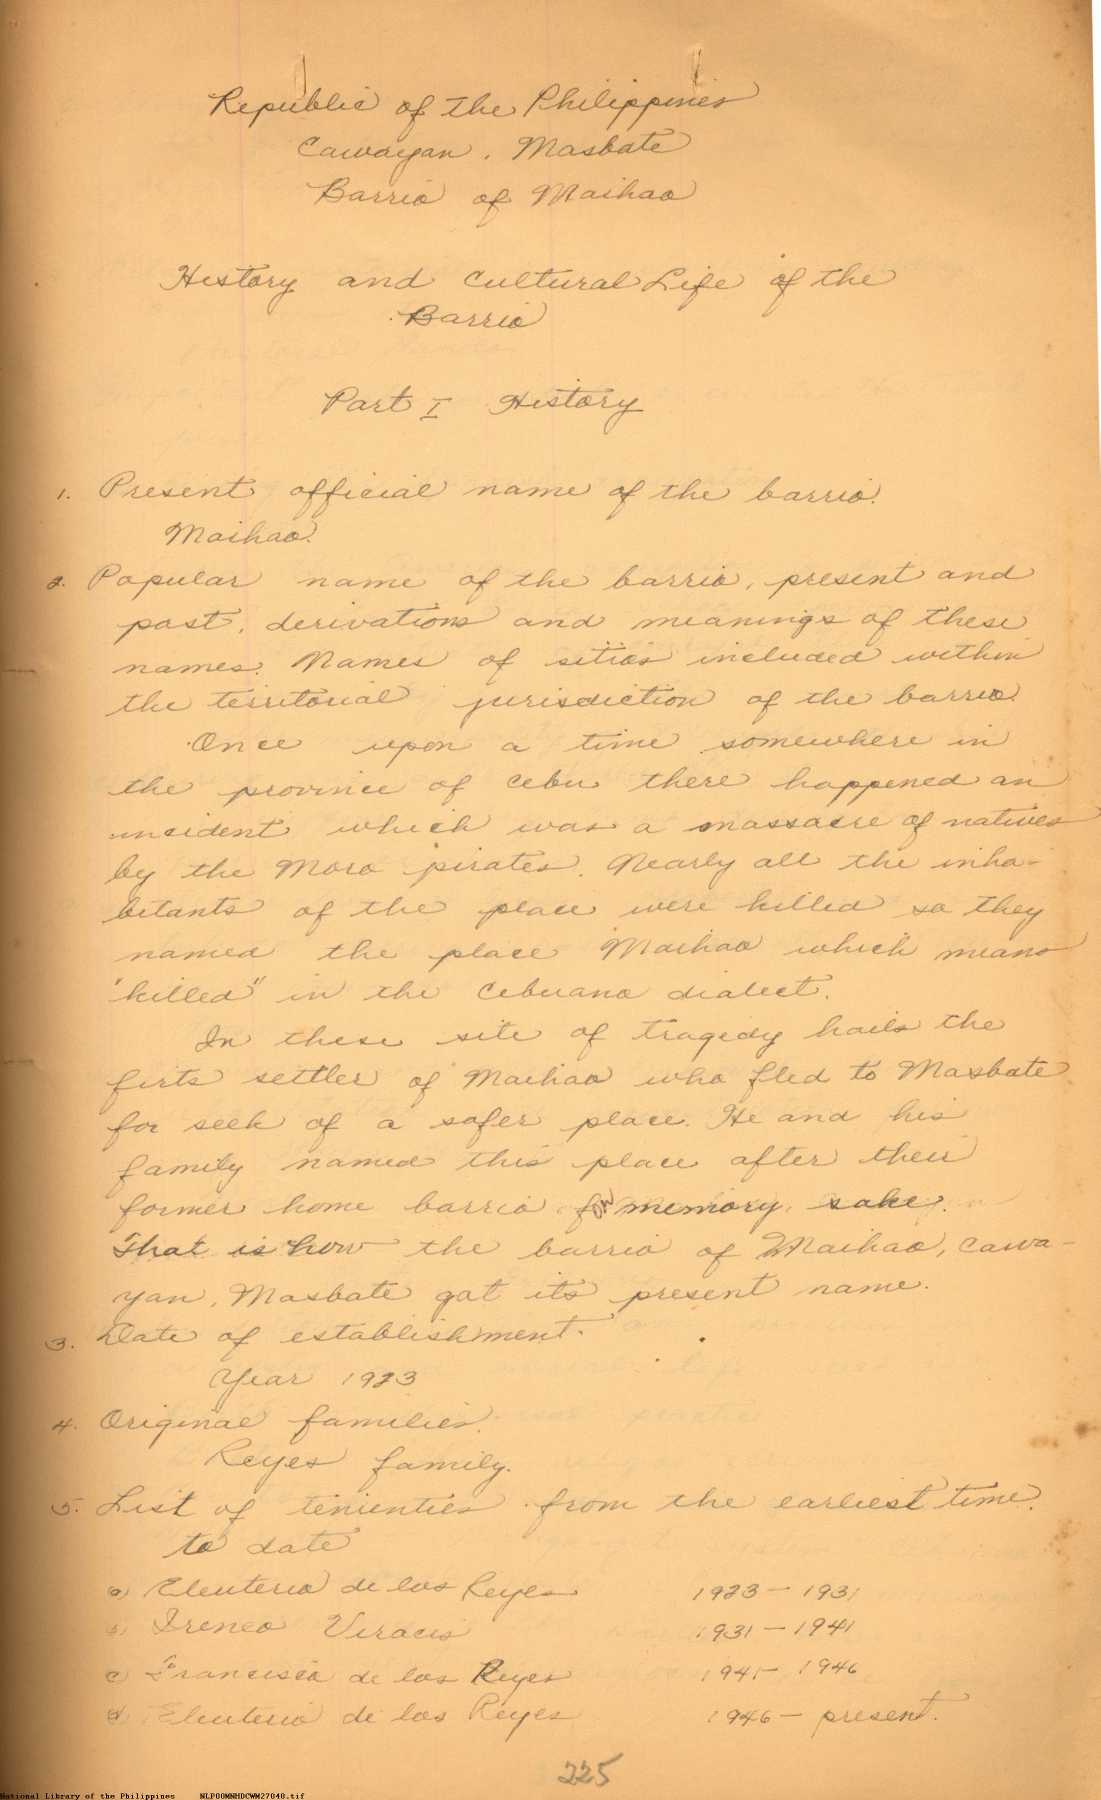 Republic of the Philippines
Cawayan, Masbate
Barrio of Maihao
History and Cultural Life of the
Barrio
Part I History
1. Present official name of the barrio.
Maihao.
2. Popular name of the barrio, present and
past, derivations and meanings of these
names. Names of sitios included within
the territorial jurisdiction of the barrio.
Once upon a time somewhere in
the province of Cebu there happened an
incident which was a massacre of natives
by the Moro pirates. Nearly all the inha-
bitants of the place were killed so they
named the place Maihao which means
"killed" in the Cebuano dialect.
In these site of tragedy hails the
firts settler of Maihao who fled to Masbate
for seek of a safer place. He and his
family named this place after their
former home barrio for memory sake.
That is how the barrio of Maihao, Cawa-
yan, Masbate got its present name.
3. Date of establishment.
Year 1923
4. Original families.
Reyes family.
5. List of tenientes from the earliest time
to date
a) Eleuterio de los Reyes 1923 - 1931
b) Ireneo 1931 - 1941
c) Francisco de los Reyes 1941 - 1946
d) Eleuterio de los Reyes 1946 - present.
225
National Library of the Philippines NLPOOMNHDCWM27040.tif